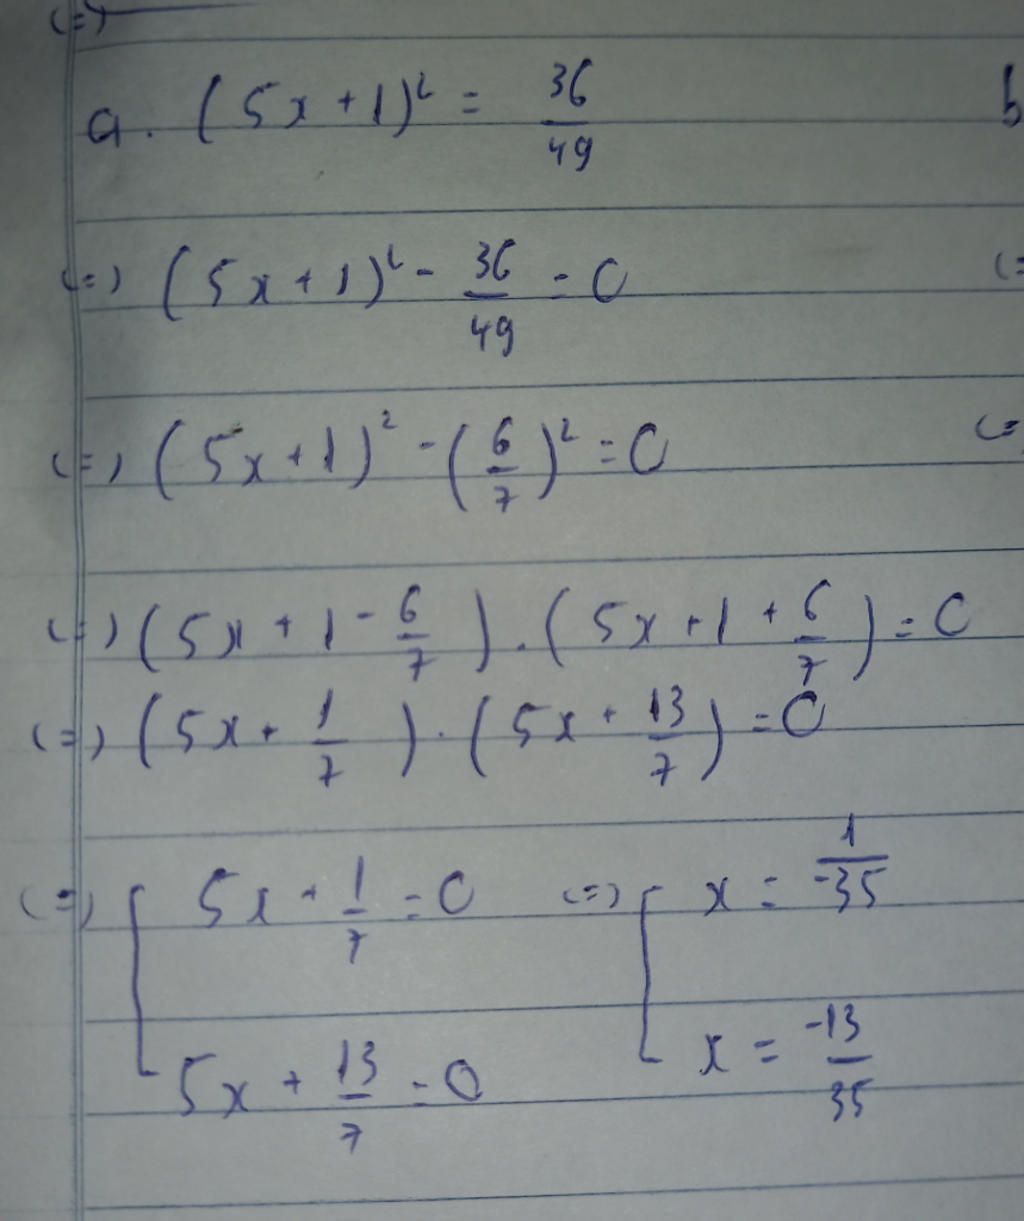 (=)
a. (5x+1)² = 36/49 b
(=) (5x+1)² - 36/49 = 0 (=
(=) (5x+1)² - (6/7)² = 0 (=
(=) (5x+1 - 6/7) . (5x+1 + 6/7) = 0
(=) (5x + 1/7) . (5x + 13/7) = 0
(=) [ 5x + 1/7 = 0 (=) [ x = 1/-35
5x + 13/7 = 0 x = -13/35